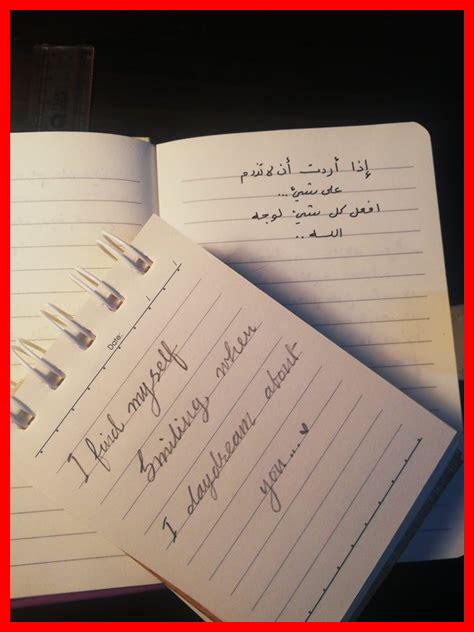 إذا أردت أن لا تندم
على شيء...
افعل كل شيء لوجه
الله..
Date: / /
I find myself
smiling when
I daydream about
you...